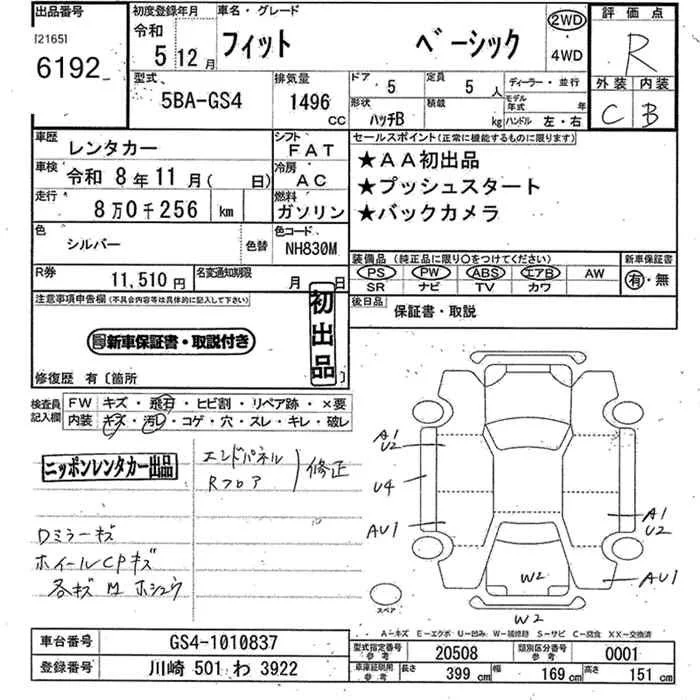 出品番号
[2165]
6192
初度登録年月
令和
5 12月
車名・グレード
フィット ベーシック
2WD
・
4WD
評価点
R
外装 内装
C B
型式
5BA-GS4
排気量
1496
CC
ドア 5
定員 5 人
ディーラー・並行
形状 ハッチB
積載 kg
モデル年式 年
ハンドル 左・右
車歴 レンタカー
シフト FAT
車検 令和 8年 11月( 日)
冷房 AC
走行 8万0千256 km
燃料 ガソリン
色 シルバー 色替
色コード NH830M
R券 11,510円
名変通知期限 月 日
セールスポイント(正常に機能するものに限ります)
★AA初出品
★プッシュスタート
★バックカメラ
装備品 (純正品に限り○をつけてください)
PS PW ABS エアB AW
SR ナビ TV カワ
新車保証書
有・無
後日品 保証書・取説
注意事項申告欄(不具合内容等は具体的に記入して下さい)
初出品
新車保証書・取説付き
修復歴 有〔箇所 〕
検査員記入欄
FW キズ・飛石・ヒビ割・リペア跡・×要
内装 キズ・汚レ・コゲ・穴・スレ・キレ・破レ
ニッポンレンタカー出品
エンドパネル
Rフロア
修正
Dミラーキズ
ホイールCPキズ
各キズ M ホシュウ
A1
U2
U4
AU1
A1
U2
AU1
W2
W2
スペア
A-キズ E-エクボ U-凹み W-補修跡 S-サビ C-腐食 XX-交換済
車台番号 GS4-1010837
登録番号 川崎 501 わ 3922
型式指定番号 参考 20508
類別区分番号 参考 0001
車庫証明用 参考 長さ 399 cm 幅 169 cm 高さ 151 cm